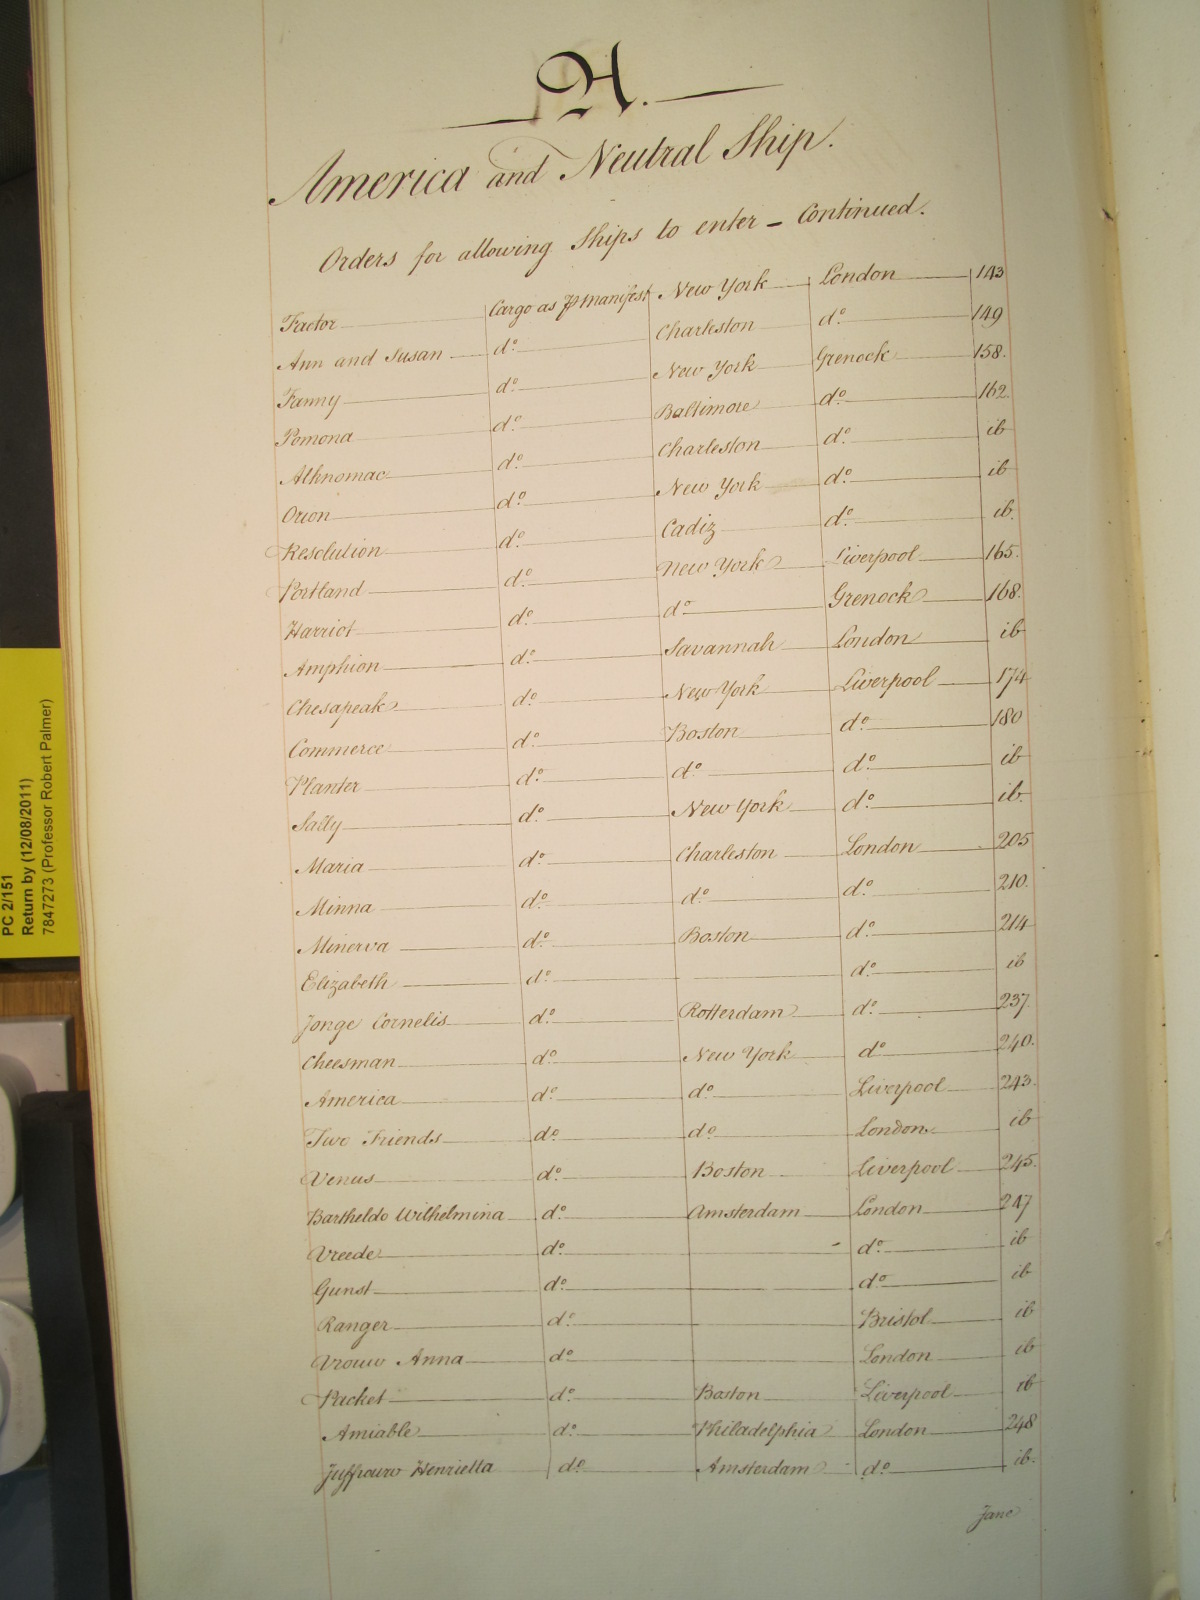 A.
America and Neutral Ship.
Orders for allowing Ships to enter – Continued.
Factor Cargo as P Manifest New York London 143
Ann and Susan do. Charleston do. 149
Fanny do. New York Grenock 158.
Pomona do. Baltimore do. 162.
Alknomac do. Charleston do. ib
Orion do. New York do. ib
Resolution do. Cadiz do. ib.
Portland do. New York Liverpool 165.
Harriot do. do. Grenock 168.
Amphion do. Savannah London ib
Chesapeak do. New York Liverpool 174
Commerce do. Boston do. 180
Planter do. do. do. ib
Sally do. New York do. ib.
Maria do. Charleston London 205
Minna do. do. do. 210.
Minerva do. Boston do. 214
Elizabeth do. do. ib
Jonge Cornelis do. Rotterdam do. 237.
Cheesman do. New York do 240.
America do. do. Liverpool 243.
Two Friends do. do. London ib
Venus do. Boston Liverpool 245.
Bartheldo Wilhelmina do. Amsterdam London 247
Vreede do. do. ib
Gunst do. do. ib
Ranger do. Bristol ib
Vrouw Anna do. London ib
Packet do. Boston Liverpool ib
Amiable do. Philadelphia London 248
Juffrouw Henrietta do. Amsterdam do. ib.
Jane
PC 2/151
Return by (12/08/2011)
7847273 (Professor Robert Palmer)